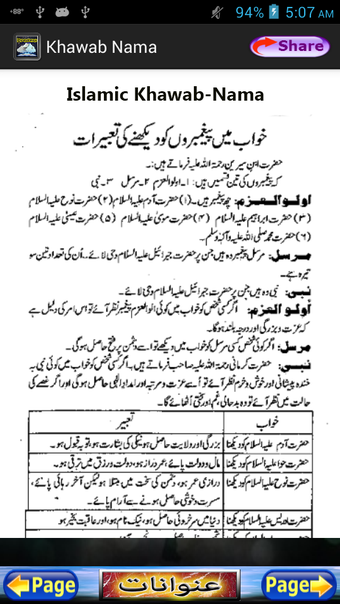 94% 5:07 AM
Khawab Nama
Share
Islamic Khawab-Nama
خواب میں پیغمبروں کو دیکھنے کی تعبیرات
حضرت ابن سیرین رحمۃ اللہ علیہ فرماتے ہیں:۔
کہ پیغمبروں کی تین قسمیں ہیں: ۱۔اولوالعزم ۲۔ مرسل ۳۔ نبی
اولوالعزم: چھ پیغمبر ہیں۔ (۱) حضرت آدم علیہ السلام (۲) حضرت نوح علیہ السلام
(۳) حضرت ابراہیم علیہ السلام (۴) حضرت موسیٰ علیہ السلام (۵) حضرت عیسیٰ علیہ السلام
(۶) حضرت محمد صلی اللہ علیہ وآلہ وسلم۔
مرسل: مرسل پیغمبر وہ ہیں جن پر حضرت جبرائیل علیہ السلام وحی لائے۔ اُن کی تعداد تین سو
تیرہ ہے۔
نبی: نبی وہ ہیں جن پر حضرت جبرائیل علیہ السلام وحی لائے۔
اولوالعزم: اگر کسی شخص کو خواب میں کوئی اولوالعزم پیغمبر نظر آئے تو اس امر کی دلیل ہے
کہ عزت و بزرگی اور درجہ بلند ہو گا۔
مرسل: اگر کوئی شخص کسی مرسل کو خواب میں دیکھے تو اسے دشمن پر فتح حاصل ہوگی۔
نبی: حضرت کرمانی رحمۃ اللہ علیہ صاحب فرماتے ہیں، اگر کسی شخص کو خواب میں کوئی نبی بہ
خندہ پیشانی اور خوش و خرم نظر آئے تو اُسے عزت و مرتبہ اور امداد الٰہی حاصل ہوگی اور اگر غصے کی
حالت میں نظر آئے تو وہ بدحالی، غم اور سختی اُٹھائے گا۔
خواب تعبیر
حضرت آدم علیہ السلام کو دیکھنا بزرگی اور ولایت حاصل ہو، نیکی کی بشارت ہو، توبہ قبول ہو۔
حضرت حوا علیہا السلام کو دیکھنا مال و دولت پائے، عمر دراز ہو، دولت ورزق میں ترقی ہو۔
حضرت نوح علیہ السلام کو دیکھنا درازی عمر ہو، دشمن کی سخت میں مبتلا ہو لیکن آخر رہائی پائے،
مسرت و خوشی حاصل ہو نے سے آرام پائے۔
حضرت ادریس علیہ السلام کو دیکھنا دنیا میں سرخروئی حاصل ہو، نیک نام ہو، اور عاقبت بخیر ہو
Page
عنوانات
Page